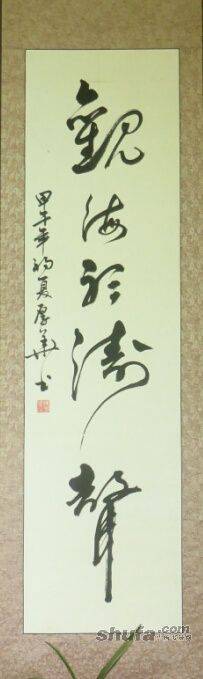 觀海聽濤聲
甲午年初夏厚華書
shufa.com